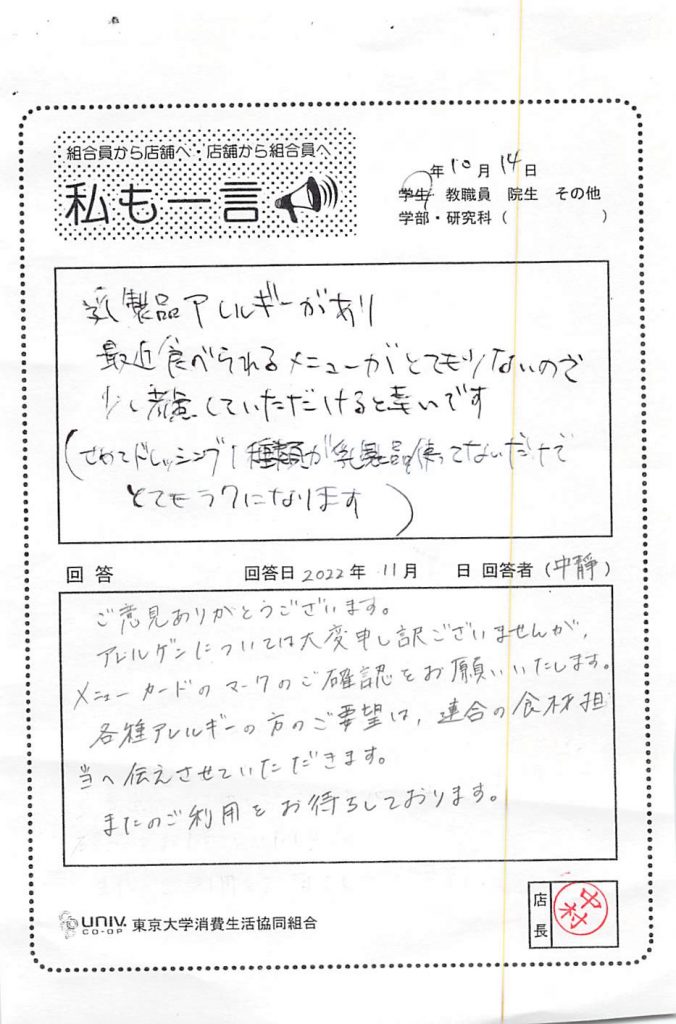 組合員から店舗へ・店舗から組合員へ
私も一言
年10月14日
学生 教職員 院生 その他
学部・研究科（　　　　　　）
乳製品アレルギーがあり
最近食べられるメニューがとても少ないので
少し考慮していただけると幸いです
(せめてドレッシング1種類が乳製品使ってないだけで
とてもラクになります)
回答 回答日2022年 11月 日 回答者(中静)
ご意見ありがとうございます。
アレルゲンについては大変申し訳ございませんが、
メニューカードのマークのご確認をお願いいたします。
各種アレルギーの方のご要望は、連合の食材担
当へ伝えさせていただきます。
またのご利用をお待ちしております。
店長 中村
UNIV. CO-OP 東京大学消費生活協同組合